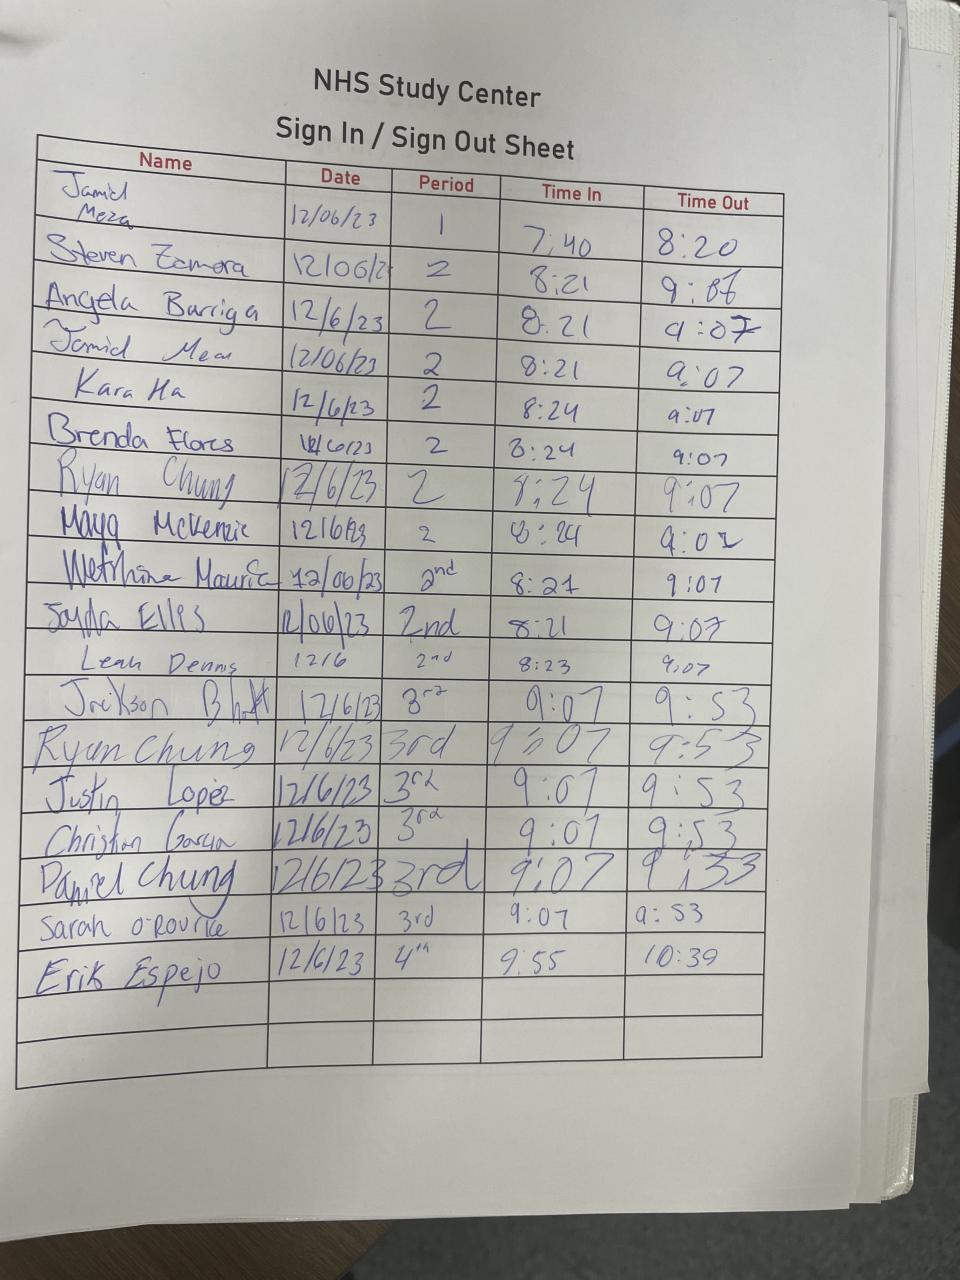 NHS Study Center
Sign In / Sign Out Sheet
Name Date Period Time In Time Out
Jamid Meza 12/06/23 1 7:40 8:20
Steven Zamora 12/06/2 2 8:21 9:07
Angela Barriga 12/6/23 2 8:21 9:07
Jamid Meza 12/06/23 2 8:21 9:07
Kara Ha 12/6/23 2 8:24 9:07
Brenda Flores 12/6/23 2 8:24 9:07
Ryan Chung 12/6/23 2 8:24 9:07
Maya McKenzie 12/6/23 2 8:24 9:07
12/06/23 2nd 8:21 9:07
Jayda Ellis 12/06/23 2nd 8:21 9:07
Leah Dennis 12/6 2nd 8:23 9:07
Jrikson 12/6/23 3rd 9:07 9:53
Ryan Chung 12/6/23 3rd 9:07 9:53
Justin Lopez 12/6/23 3rd 9:07 9:53
Christian Garcia 12/6/23 3rd 9:07 9:53
Daniel Chung 12/6/23 3rd 9:07 9:53
Sarah O'Rourke 12/6/23 3rd 9:07 9:53
Erik Espejo 12/6/23 4th 9:55 10:39